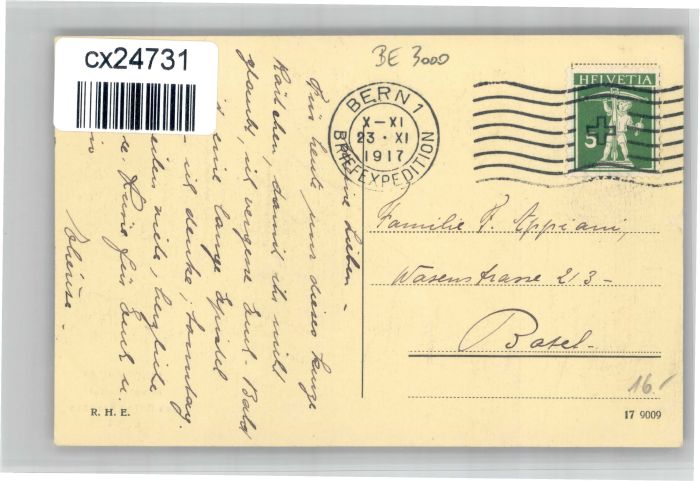 cx24731
BE 3000
BERN 1
X-XI
23·XI
1917
BRIEFEXPEDITION
HELVETIA
5
Lieben -
Für heute nur dieses kurze
Kärtchen, damit ihr nicht
glaubt, ich vergesse Euch. Bald
eine lange Epistel
ich denke, Sonntag.
viele, herzliche
für Euch u.
Familie F. Appiani,
Wasenstrasse 213-
Basel.
16.-
R. H. E.
17 9009